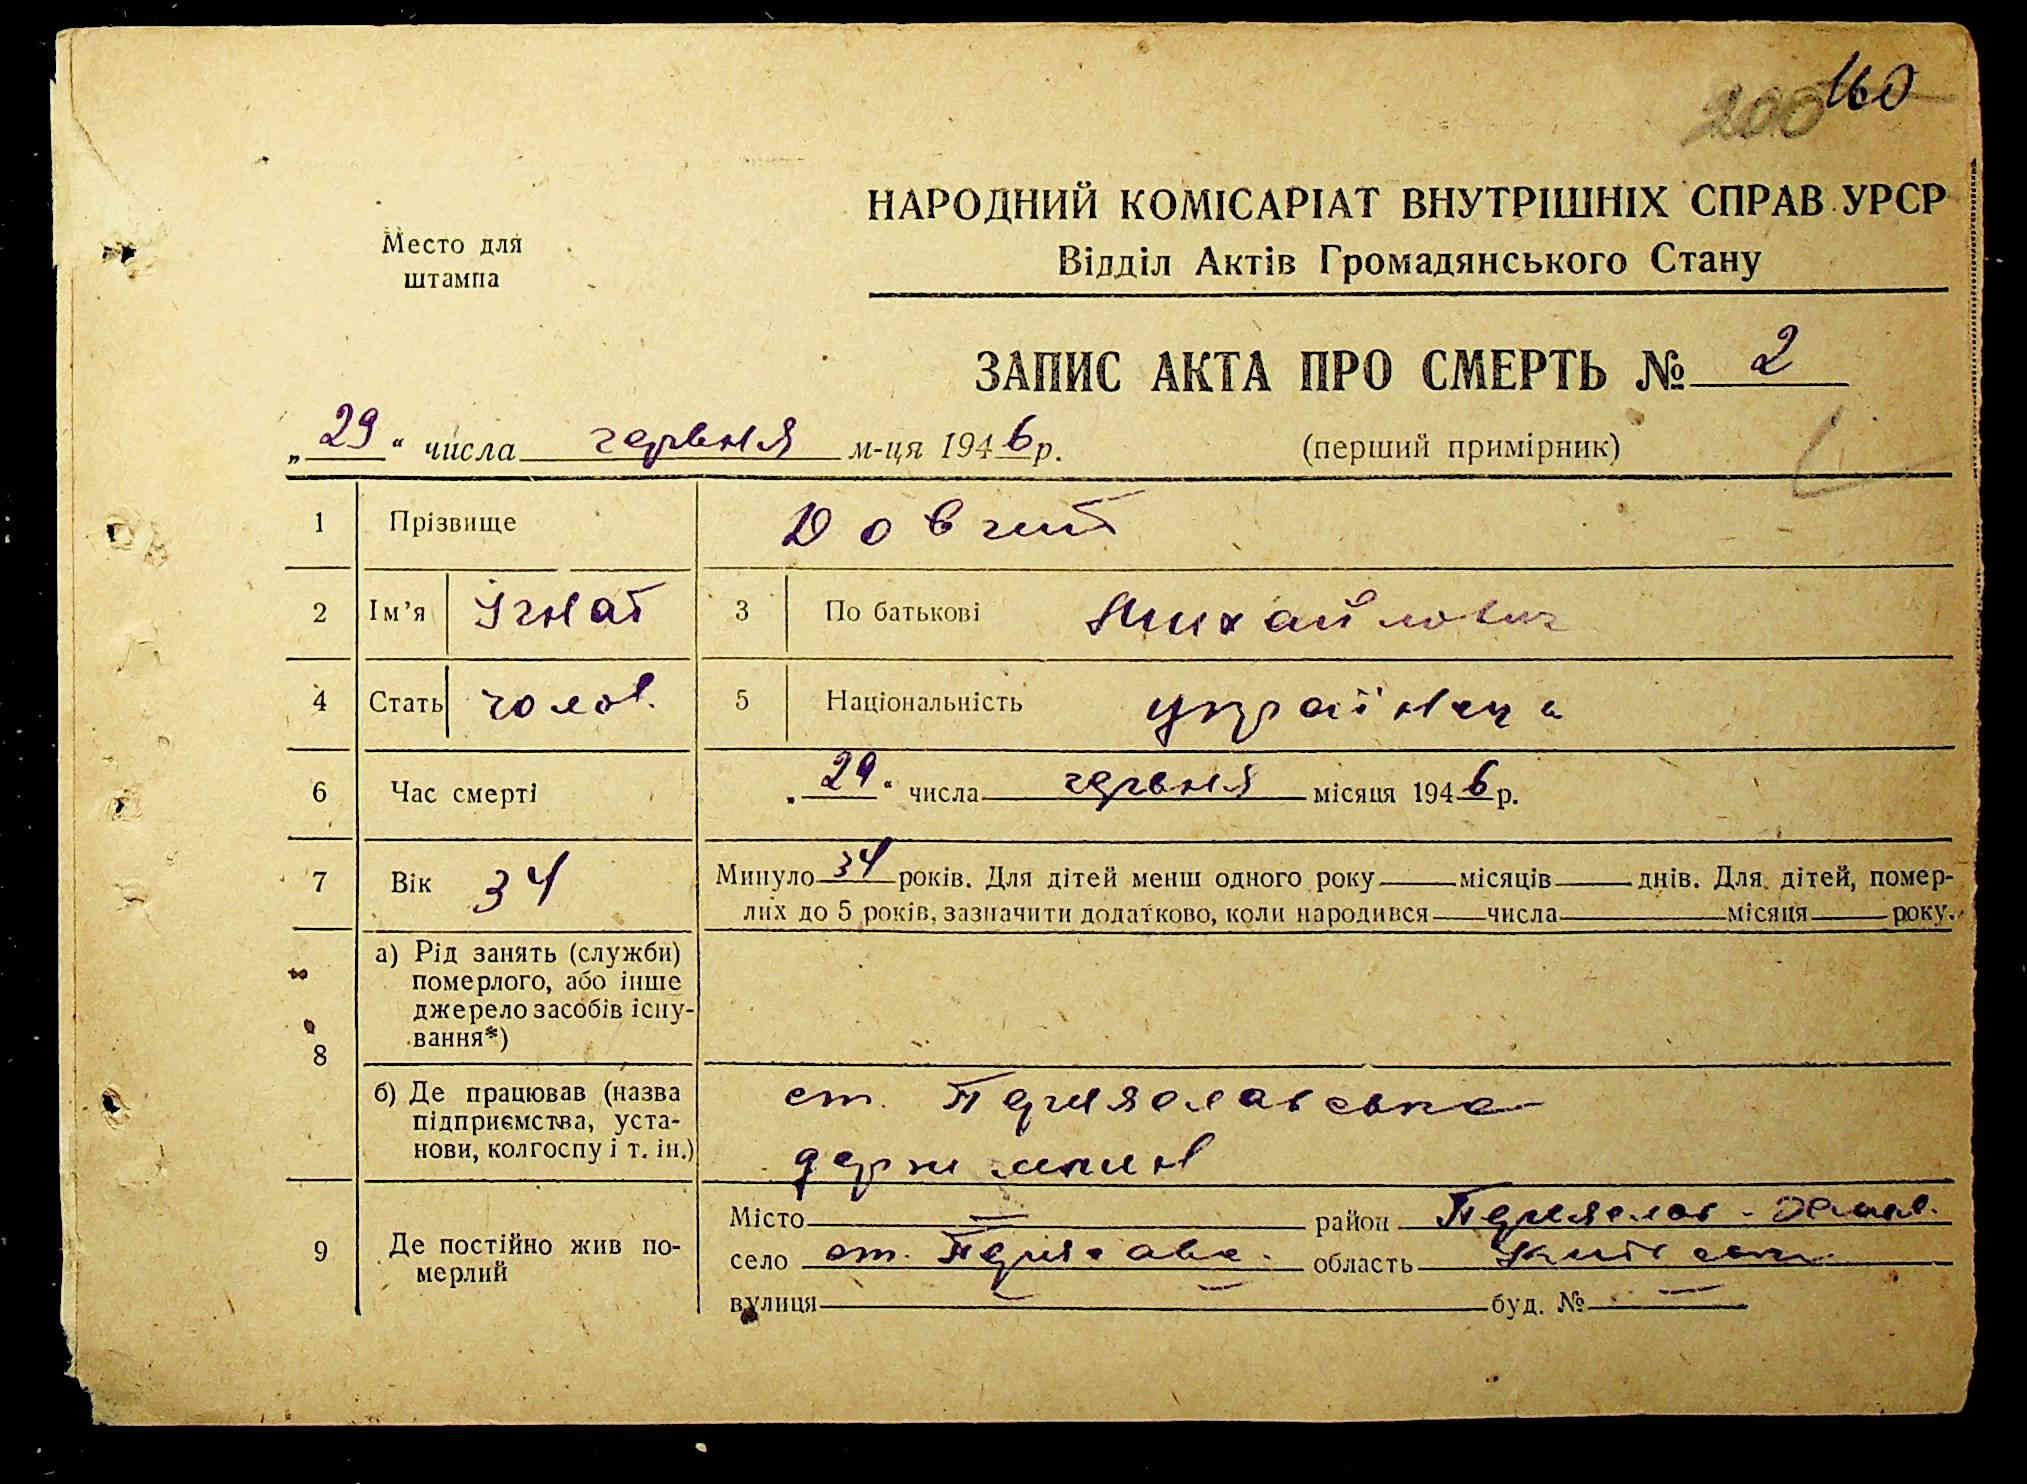 200 160
НАРОДНИЙ КОМІСАРІАТ ВНУТРІШНІХ СПРАВ УРСР
Место для
штампа
Відділ Актів Громадянського Стану
ЗАПИС АКТА ПРО СМЕРТЬ № 2
„29“ числа червня м-ця 1946 р.
(перший примірник)
1 Прізвище Довгий
2 Ім’я Ігнат 3 По батькові Михайлович
4 Стать чолов. 5 Національність українець
6 Час смерті „29“ числа червня місяця 1946 р.
7 Вік 34 Минуло 34 років. Для дітей менш одного року місяців днів. Для дітей, помер-
лих до 5 років, зазначити додатково, коли народився числа місяця року.
8 а) Рід занять (служби)
померлого, або інше
джерело засобів існу-
вання*)
б) Де працював (назва
підприємства, уста-
нови, колгоспу і т. ін.)
ст. Переяславська
держ млин
9 Де постійно жив по-
мерлий
Місто — район Переяслав-Хмел.
село ст. Переяслав. область Київськ
вулиця — буд. № —